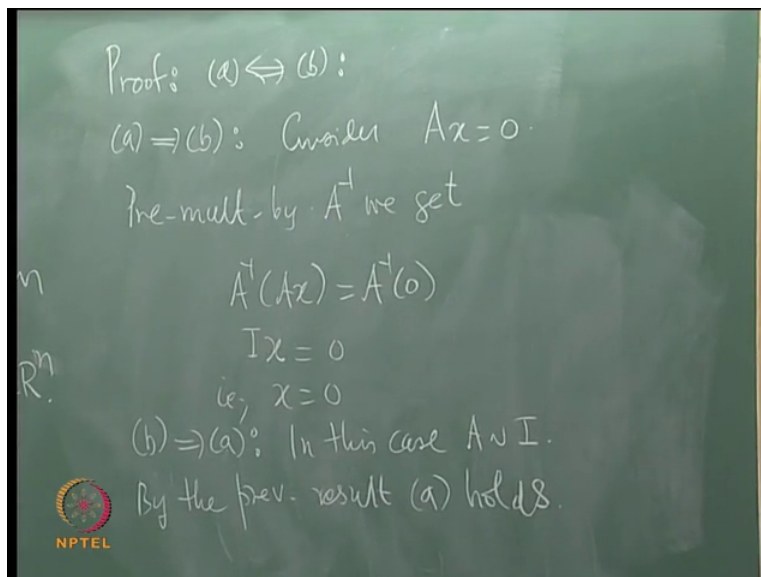 Proof: (a) ⟺ (b) :
(a) ⟹ (b) : Consider Ax = 0.
Pre-mult. by A⁻¹ we get
n
A⁻¹(Ax) = A⁻¹(0)
Ix = 0
Rⁿ.
ie; x = 0
(b) ⟹ (a) : In this case A ~ I.
By the prev. result (a) holds.
NPTEL